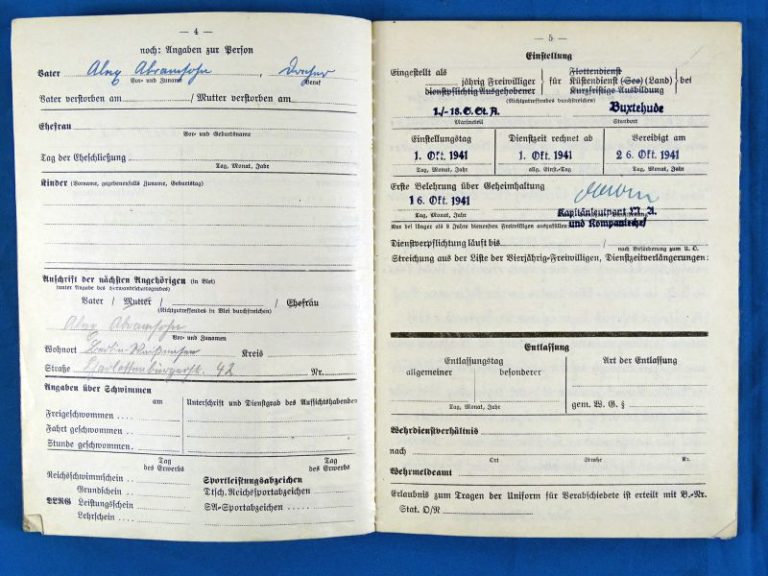 — 4 —
noch: Angaben zur Person
Vater Alex Abramsohn, Dreher
Vor- und Zuname Beruf
Vater verstorben am / Mutter verstorben am
Ehefrau
Vor- und Geburtsname
Tag der Eheschließung
Tag, Monat, Jahr
Kinder (Vorname, gegebenenfalls Zuname, Geburtstag)
Anschrift der nächsten Angehörigen (in Blei)
(unter Angabe des Verwandtschaftsgrades)
Vater / Mutter / / Ehefrau
(Nichtzutreffendes in Blei durchstreichen)
Alex Abramsohn
Vor- und Zunamen
Wohnort Berlin-Weißensee Kreis
Straße Charlottenburgerst. 42 Nr.
Angaben über Schwimmen
am Unterschrift und Dienstgrad des Aufsichthabenden
Freigeschwommen
Fahrt geschwommen
Stunde geschwommen
Tag des Erwerbs Tag des Erwerbs
Reichsschwimmschein Sportleistungsabzeichen
Grundschein Dtsch. Reichssportabzeichen
DLRG Leistungsschein SA-Sportabzeichen
Lehrschein
— 5 —
Einstellung
Flottendienst
Eingestellt als jährig Freiwilliger für Küstendienst (See) (Land) bei
dienstpflichtig Ausgehobener Kurzfristige Ausbildung
(Nichtzutreffendes durchstreichen)
1./-18.S.St.A. Buxtehude
Marineteil Standort
Einstellungstag Dienstzeit rechnet ab Vereidigt am
1. Okt. 1941 1. Okt. 1941 26. Okt. 1941
Tag, Monat, Jahr allg. Einst.-Tag Tag, Monat, Jahr
Erste Belehrung über Geheimhaltung
16. Okt. 1941
Tag, Monat, Jahr Kapitänleutnant M. A.
Nur bei länger als 2 Jahre dienenden Freiwilligen auszufüllen und Kompaniechef
Dienstverpflichtung läuft bis /
nach Beförderung zum U. O.
Streichung aus der Liste der Vierjährig-Freiwilligen, Dienstzeitverlängerungen:
Entlassung
Entlassungstag Art der Entlassung
allgemeiner besonderer
Tag, Monat, Jahr gem. W. G. §
Wehrdienstverhältnis
nach
Ort Straße Nr.
Wehrmeldeamt
Erlaubnis zum Tragen der Uniform für Verabschiedete ist erteilt mit B.-Nr.
Stat. O/N